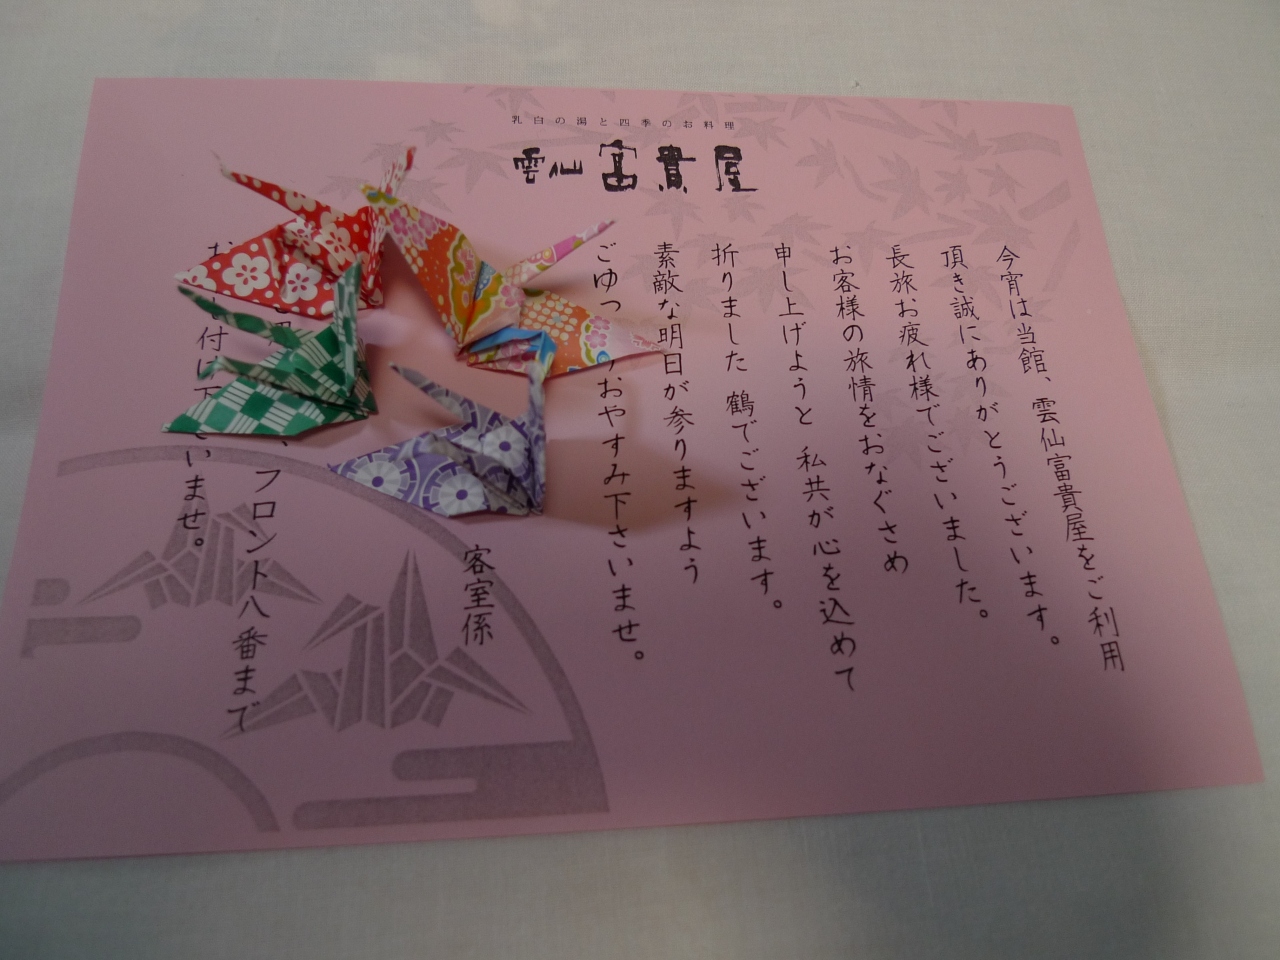 乳白の湯と四季のお料理
雲仙富貴屋
今宵は当館、雲仙富貴屋をご利用
頂き誠にありがとうございます。
長旅お疲れ様でございました。
お客様の旅情をおなぐさめ
申し上げようと 私共が心を込めて
折りました 鶴でございます。
素敵な明日が参りますよう
ごゆっ おやすみ下さいませ。
客室係
、フロント八番まで
お 付け下 いませ。